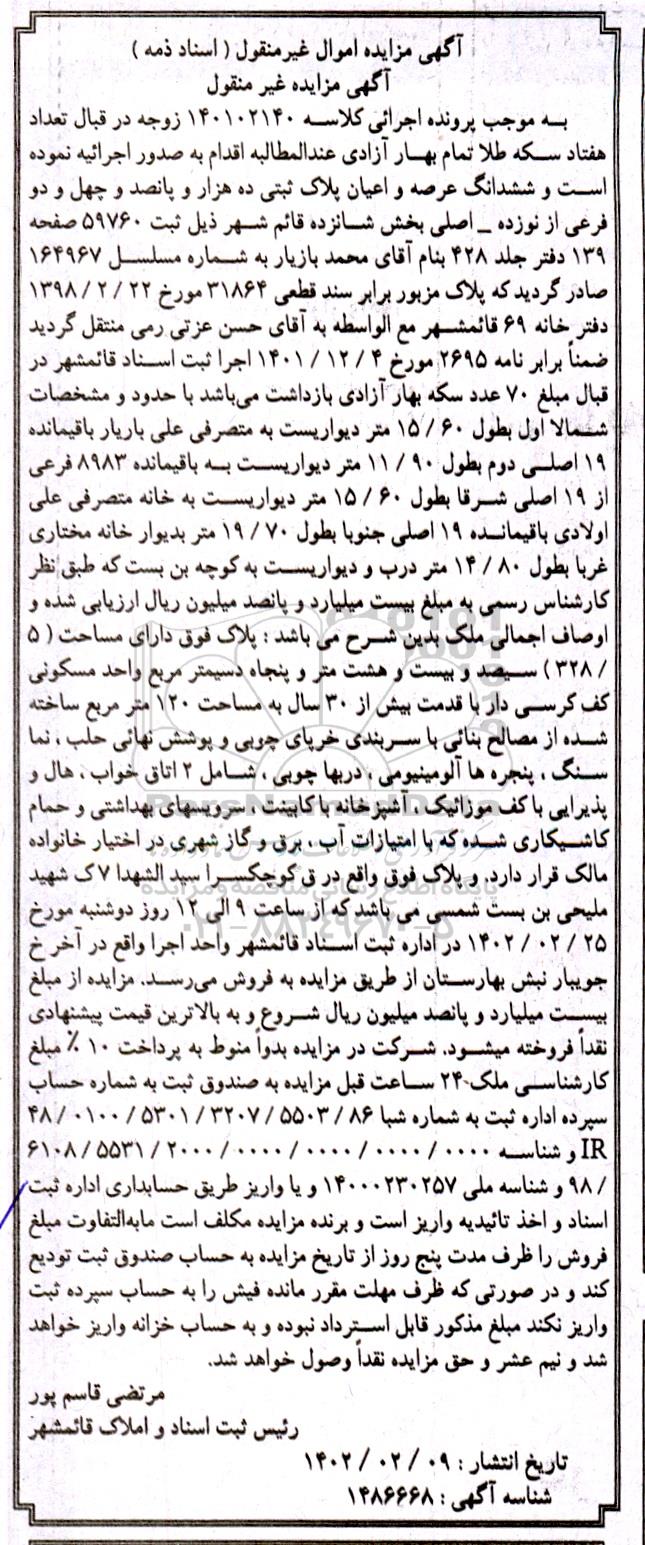 آگهی مزایده اموال غیرمنقول ( اسناد ذمه )
آگهی مزایده غیر منقول
به موجب پرونده اجرائی کلاسه ۱۴۰۱۰۲۱۴۰ زوجه در قبال تعداد
هفتاد سکه طلا تمام بهار آزادی عندالمطالبه اقدام به صدور اجرائیه نموده
است و ششدانگ عرصه و اعیان پلاک ثبتی ده هزار و پانصد و چهل و دو
فرعی از نوزده _ اصلی بخش شانزده قائم شهر ذیل ثبت ۵۹۷۶۰ صفحه
۱۳۹ دفتر جلد ۴۲۸ بنام آقای محمد بازیار به شماره مسلسل ۱۶۴۹۶۷
صادر گردید که پلاک مزبور برابر سند قطعی ۳۱۸۶۴ مورخ ۲۲ / ۲ / ۱۳۹۸
دفتر خانه ۶۹ قائمشهر مع الواسطه به آقای حسن عزتی رمی منتقل گردید
ضمناً برابر نامه ۲۶۹۵ مورخ ۴ / ۱۲ / ۱۴۰۱ اجرا ثبت اسناد قائمشهر در
قبال مبلغ ۷۰ عدد سکه بهار آزادی بازداشت می‌باشد با حدود و مشخصات
شمالا اول بطول ۶۰ / ۱۵ متر دیواریست به متصرفی علی باریار باقیمانده
۱۹ اصلی دوم بطول ۹۰ / ۱۱ متر دیواریست به باقیمانده ۸۹۸۳ فرعی
از ۱۹ اصلی شرقا بطول ۶۰ / ۱۵ متر دیواریست به خانه متصرفی علی
اولادی باقیمانده ۱۹ اصلی جنوبا بطول ۷۰ / ۱۹ متر بدیوار خانه مختاری
غربا بطول ۸۰ / ۱۴ متر درب و دیواریست به کوچه بن بست که طبق نظر
کارشناس رسمی به مبلغ بیست میلیارد و پانصد میلیون ریال ارزیابی شده و
اوصاف اجمالی ملک بدین شرح می باشد : پلاک فوق دارای مساحت ( ۵
/ ۳۲۸ ) سیصد و بیست و هشت متر و پنجاه دسیمتر مربع واحد مسکونی
کف کرسی دار با قدمت بیش از ۳۰ سال به مساحت ۱۲۰ متر مربع ساخته
شده از مصالح بنائی با سربندی خرپای چوبی و پوشش نهائی حلب ، نما
سنگ ، پنجره ها آلومینیومی ، دربها چوبی ، شامل ۲ اتاق خواب ، هال و
پذیرایی با کف موزائیک ، آشپزخانه با کابینت ، سرویسهای بهداشتی و حمام
کاشیکاری شده که با امتیازات آب ، برق و گاز شهری در اختیار خانواده
مالک قرار دارد. و پلاک فوق واقع در ق کوچکسرا سید الشهدا ۷ک شهید
ملیحی بن بست شمسی می باشد که از ساعت ۹ الی ۱۲ روز دوشنبه مورخ
۲۵ / ۰۲ / ۱۴۰۲ در اداره ثبت اسناد قائمشهر واحد اجرا واقع در آخر خ
جویبار نبش بهارستان از طریق مزایده به فروش می‌رسد. مزایده از مبلغ
بیست میلیارد و پانصد میلیون ریال شروع و به بالاترین قیمت پیشنهادی
نقداً فروخته میشود. شرکت در مزایده بدواً منوط به پرداخت ۱۰ ٪ مبلغ
کارشناسی ملک ۲۴ ساعت قبل مزایده به صندوق ثبت به شماره حساب
سپرده اداره ثبت به شماره شبا ۸۶ / ۵۵۰۳ / ۳۲۰۷ / ۵۳۰۱ / ۰۱۰۰ / ۴۸
IR و شناسه ۰۰۰۰ / ۰۰۰۰ / ۰۰۰۰ / ۰۰۰۰ / ۲۰۰۰ / ۵۵۳۱ / ۶۱۰۸
/ ۹۸ و شناسه ملی ۱۴۰۰۰۲۳۰۲۵۷ و یا واریز طریق حسابداری اداره ثبت
اسناد و اخذ تائیدیه واریز است و برنده مزایده مکلف است مابه‌التفاوت مبلغ
فروش را ظرف مدت پنج روز از تاریخ مزایده به حساب صندوق ثبت تودیع
کند و در صورتی که ظرف مهلت مقرر مانده فیش را به حساب سپرده ثبت
واریز نکند مبلغ مذکور قابل استرداد نبوده و به حساب خزانه واریز خواهد
شد و نیم عشر و حق مزایده نقداً وصول خواهد شد.
مرتضی قاسم پور
رئیس ثبت اسناد و املاک قائمشهر
تاریخ انتشار : ۰۹ / ۰۲ / ۱۴۰۲
شناسه آگهی : ۱۴۸۶۶۶۸
ParsNamadData
پایگاه اطلاع رسانی مناقصه و مزایده
۰۲۱-۸۸۳۴۹۶۷۰-۵